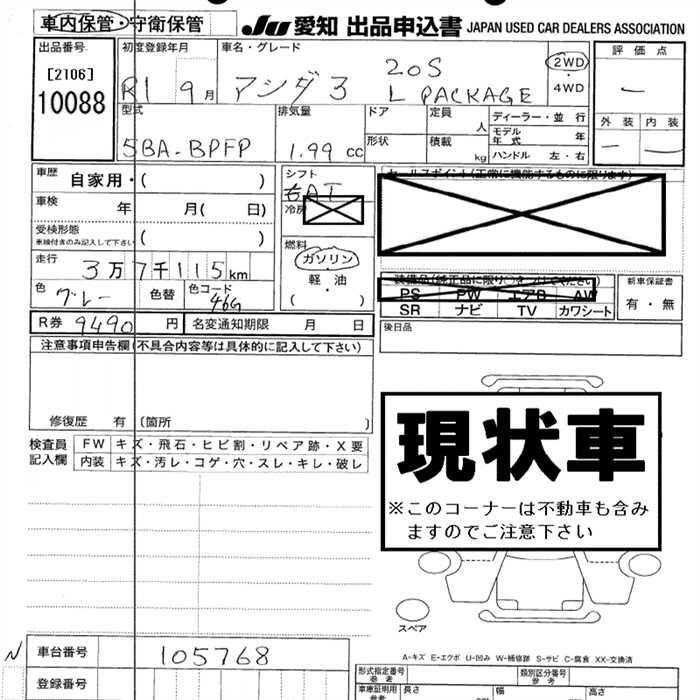 車内保管・守衛保管
JU 愛知 出品申込書 JAPAN USED CAR DEALERS ASSOCIATION
出品番号
[2106]
10088
初度登録年月
R1 9月
車名・グレード
アシダ3 20S
L PACKAGE
2WD
・
4WD
評価点
—
外装 内装
— —
型式
5BA-BPFP
排気量
1.99 cc
ドア
定員
人
形状
積載
kg
ディーラー・並行
モデル年式 年
ハンドル 左・右
車歴 自家用・( )
車検 年 月( 日)
受検形態
車検付きのみ記入して下さい ( )
走行 3万7千115km
色 グレー 色替 色コード 46G
R券 9490円 名変通知期限 月 日
シフト
AT
冷房
燃料
ガソリン・
軽・油
( )
セールスポイント(正常に機能するものに限ります)
装備品(純正品に限り○をつけてください)
PS PW エアB AW
SR ナビ TV カワシート
新車保証書
有・無
後日品
注意事項申告欄(不具合内容等は具体的に記入して下さい)
修復歴 有 (箇所 )
検査員記入欄
FW キズ・飛石・ヒビ割・リペア跡・X要
内装 キズ・汚レ・コゲ・穴・スレ・キレ・破レ
現状車
※このコーナーは不動車も含み
ますのでご注意下さい
スペア
A-キズ E-エクボ U-凹み W-補修跡 S-サビ C-腐食 XX-交換済
N 車台番号 105768
登録番号
形式指定番号 類別区分番号
車庫証明用参考 長さ 幅 高さ